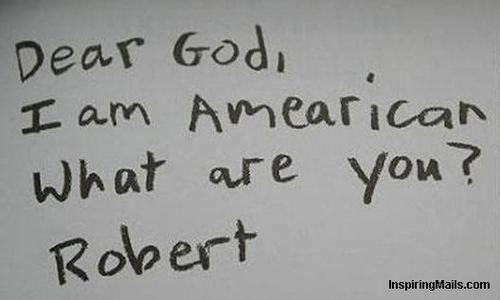 Dear God,
I am Amearican
What are you?
Robert
InspiringMails.com